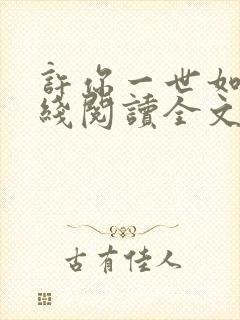 許你一世如
綫閱讀全文
古有佳人